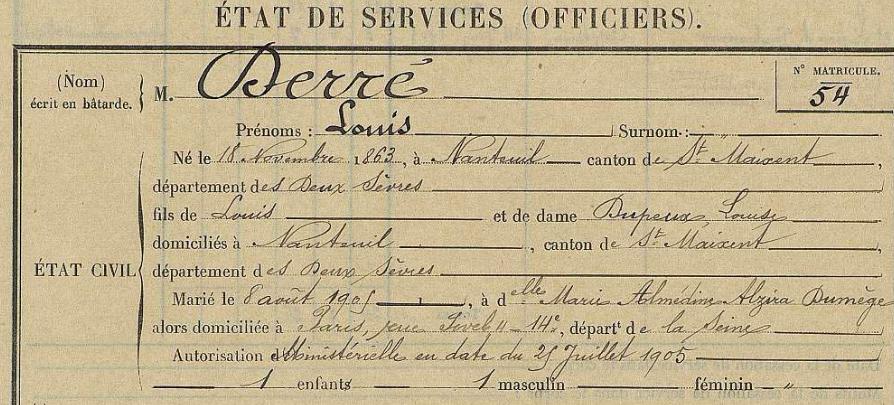 ÉTAT DE SERVICES (OFFICIERS).
(Nom) écrit en bâtarde. M. Derré
N° MATRICULE. 54
Prénoms : Louis Surnom : "
Né le 18 Novembre 1863, à Nanteuil canton de St Maixent,
département des Deux Sèvres
fils de Louis et de dame Dupeux Louise
domiciliés à Nanteuil, canton de St Maixent,
ÉTAT CIVIL département des Deux Sèvres
Marié le 8 août 1905, à delle Marie Almédine Alzira Dumège
alors domiciliée à Paris, rue 14e, départt de la Seine
Autorisation Ministérielle en date du 25 Juillet 1905
1 enfants 1 masculin féminin "